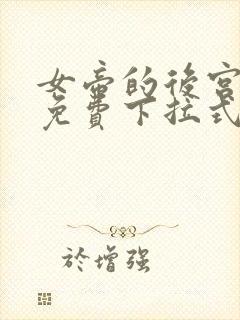 女帝的後宮
免費下拉式
於增强